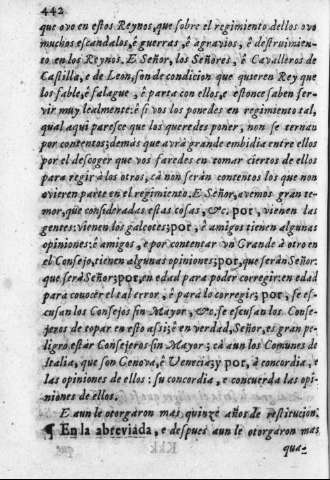 442
que ovo en estos Reynos, que sobre el regimiento dellos ovo
muchos escandalos, è guerras, è agravios, è destruimien-
to en los Reynos. E Señor, los Señores, è Cavalleros de
Castilla, e de Leon, son de condicion que quieren Rey que
los fable, è falague, è parta con ellos, e estonce saben ser-
vir muy lealmente: è si vos los ponedes en regimiento tal,
qual aqui paresce que los queredes poner, non se ternan
por contentos; demàs que avrà grande embidia entre ellos
por el descoger que vos faredes en tomar ciertos de ellos
para regir à los otros, cà non serán contentos los que non
ovieren parte en el regimiento. E Señor, avemos gran te-
mor, que consideradas estas cosas, &c. por, vienen las
gentes: vienen los galeotes; por, è amigos tienen algunas
opiniones: è amigos, e por contentar un Grande à otro en
el Consejo, tienen algunas opiniones; por, que serán Señor:
que será Señor; por, en edad para poder corregir: en edad
para conocér el tal error, è para lo corregir; por, se es-
cusan los Consejos sin Mayor, &c. se escusan los Conse-
jeros de topar en esto assi; è en verdad, Señor, es gran pe-
ligro estár Consejeros sin Mayor; cà aun los Comunes de
Italia, que son Genova, è Venecia; y por, à concordia, e
las opiniones de ellos: su concordia, e concuerda las opi-
niones de ellos.
E aun le otorgaron mas quinze años de restitucion.
¶ En la abreviada, e despues aun le otorgaron mas
qua-